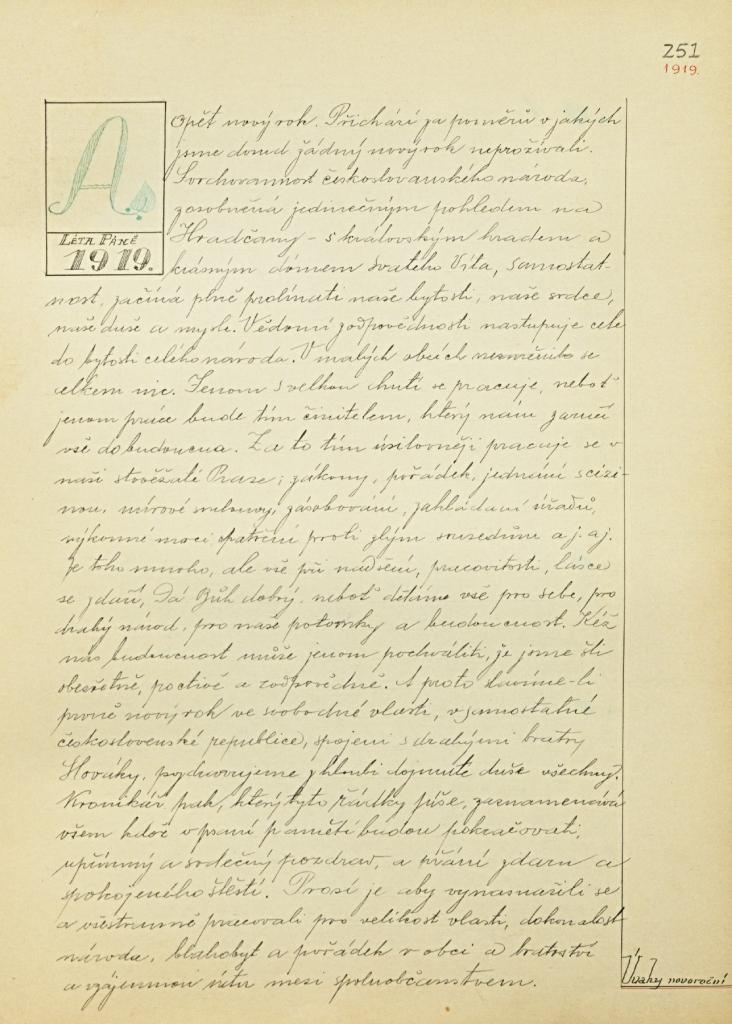 251
1919.
A.
LÉTA PÁNĚ
1919.
Opět nový rok. Přichází za poměrů v jakých
jsme dosud žádný nový rok neprožívali.
Svrchovannost československého národa,
zosobněná jedinečným pohledem na
Hradčany – s královským hradem a
krásným dómem svatého Víta, samostat-
nost, začíná plně prolínati naše bytosti, naše srdce,
naše duše a mysle. Vědomí zodpovědnosti nastupuje cele
do bytosti celého národa. V malých obcích nezměnilo se
celkem nic. Jenom s velkou chutí se pracuje, neboť
jenom práce bude tím činitelem, který nám zaručí
vše do budoucna. Za to tím úsilovněji pracuje se v
naší stověžaté Praze; zákony, pořádek, jednání s cizi-
nou, mírové smlouvy, zásobování, zakládání úřadů,
výkonné moci opatření proti zlým sousedům a j. a j.
Je toho mnoho, ale vše při nadšení, pracovitosti, lásce
se zdaří, Dá Bůh dobrý, neboť děláme vše pro sebe, pro
drahý národ, pro naše potomky a budoucnost. Kéž
nás budoucnost může jenom pochváliti, že jsme šli
obezřetně, poctivě a zodpovědně. A proto slavíme-li
prvně nový rok ve svobodné vlasti, v samostatné
československé republice, spojeni s drahými bratry
Slováky, pozdravujeme z hloubi dojmuté duše všechny.
Kronikář pak, který tyto řádky píše, zaznamenává
všem kdož v psaní pamětí budou pokračovati,
upřímný a srdečný pozdrav, a přání zdaru a
spokojeného štěstí. Prosí je aby vynasnažili se
a všestranně pracovali pro velikost vlasti, dokonalost
národa, blahobyt a pořádek v obci a bratrství
a vzájemnou úctu mezi spoluobčanstvem.
Úvahy novoroční